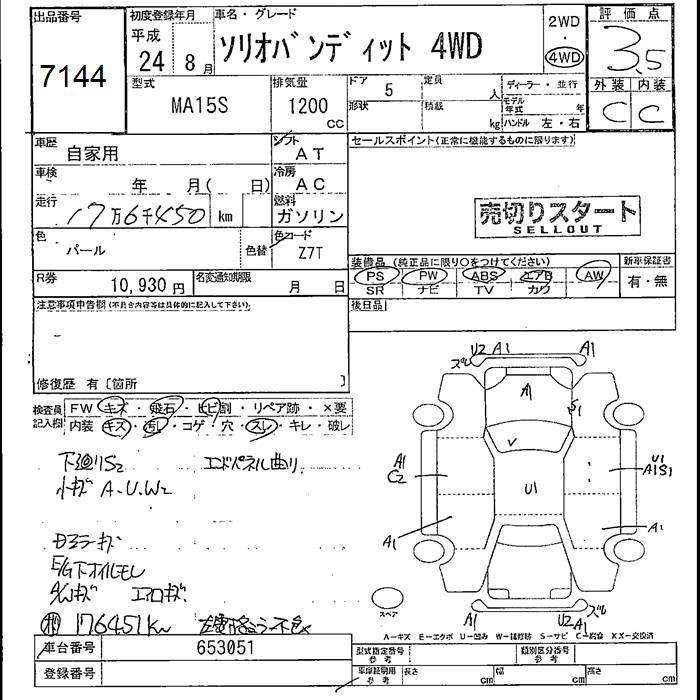 出品番号
7144
初度登録年月
平成
24年 8月
車名・グレード
ソリオバンディット 4WD
2WD
・
4WD
評価点
3.5
外装 内装
C C
型式
MA15S
排気量
1200
cc
ドア
5
形状
定員
人
積載
kg
ディーラー・並行
モデル年式 年
ハンドル 左・右
車歴
自家用
シフト
AT
セールスポイント(正常に機能するものに限ります)
車検
年 月( 日)
冷房
AC
走行
17万6千450 km
燃料
ガソリン
売切りスタート
SELLOUT
色
パール
色替
色コード
Z7T
装備品 (純正品に限り○をつけてください)
新車保証書
PS PW ABS エアB AW
SR ナビ TV カワ
有・無
R券
10,930円
名変通知期限
月 日
後日品
注意事項申告欄(不具合内容等は具体的に記入して下さい)
修復歴 有〔箇所 〕
検査員記入欄
FW キズ・飛石・ヒビ割・リペア跡・×要
内装 キズ・汚し・コゲ・穴・スレ・キレ・破レ
下廻りS2 エンドパネル曲り
小キズ A.U.W2
E/G下オイルモレ
A/Wキズ エアロキズ
176451km
ズル U2 A1 A1
A1
S1
V
A1
C2
U1
U1
A1S1
A1
A1
A1
U2 A1
ズル
スペア
A-キズ E-エクボ U-凹み W-補修跡 S-サビ C-腐食 XX-交換済
車台番号
653051
登録番号
型式指定番号
参考
類別区分番号
参考
車庫証明用
参考
長さ cm
幅 cm
高さ cm